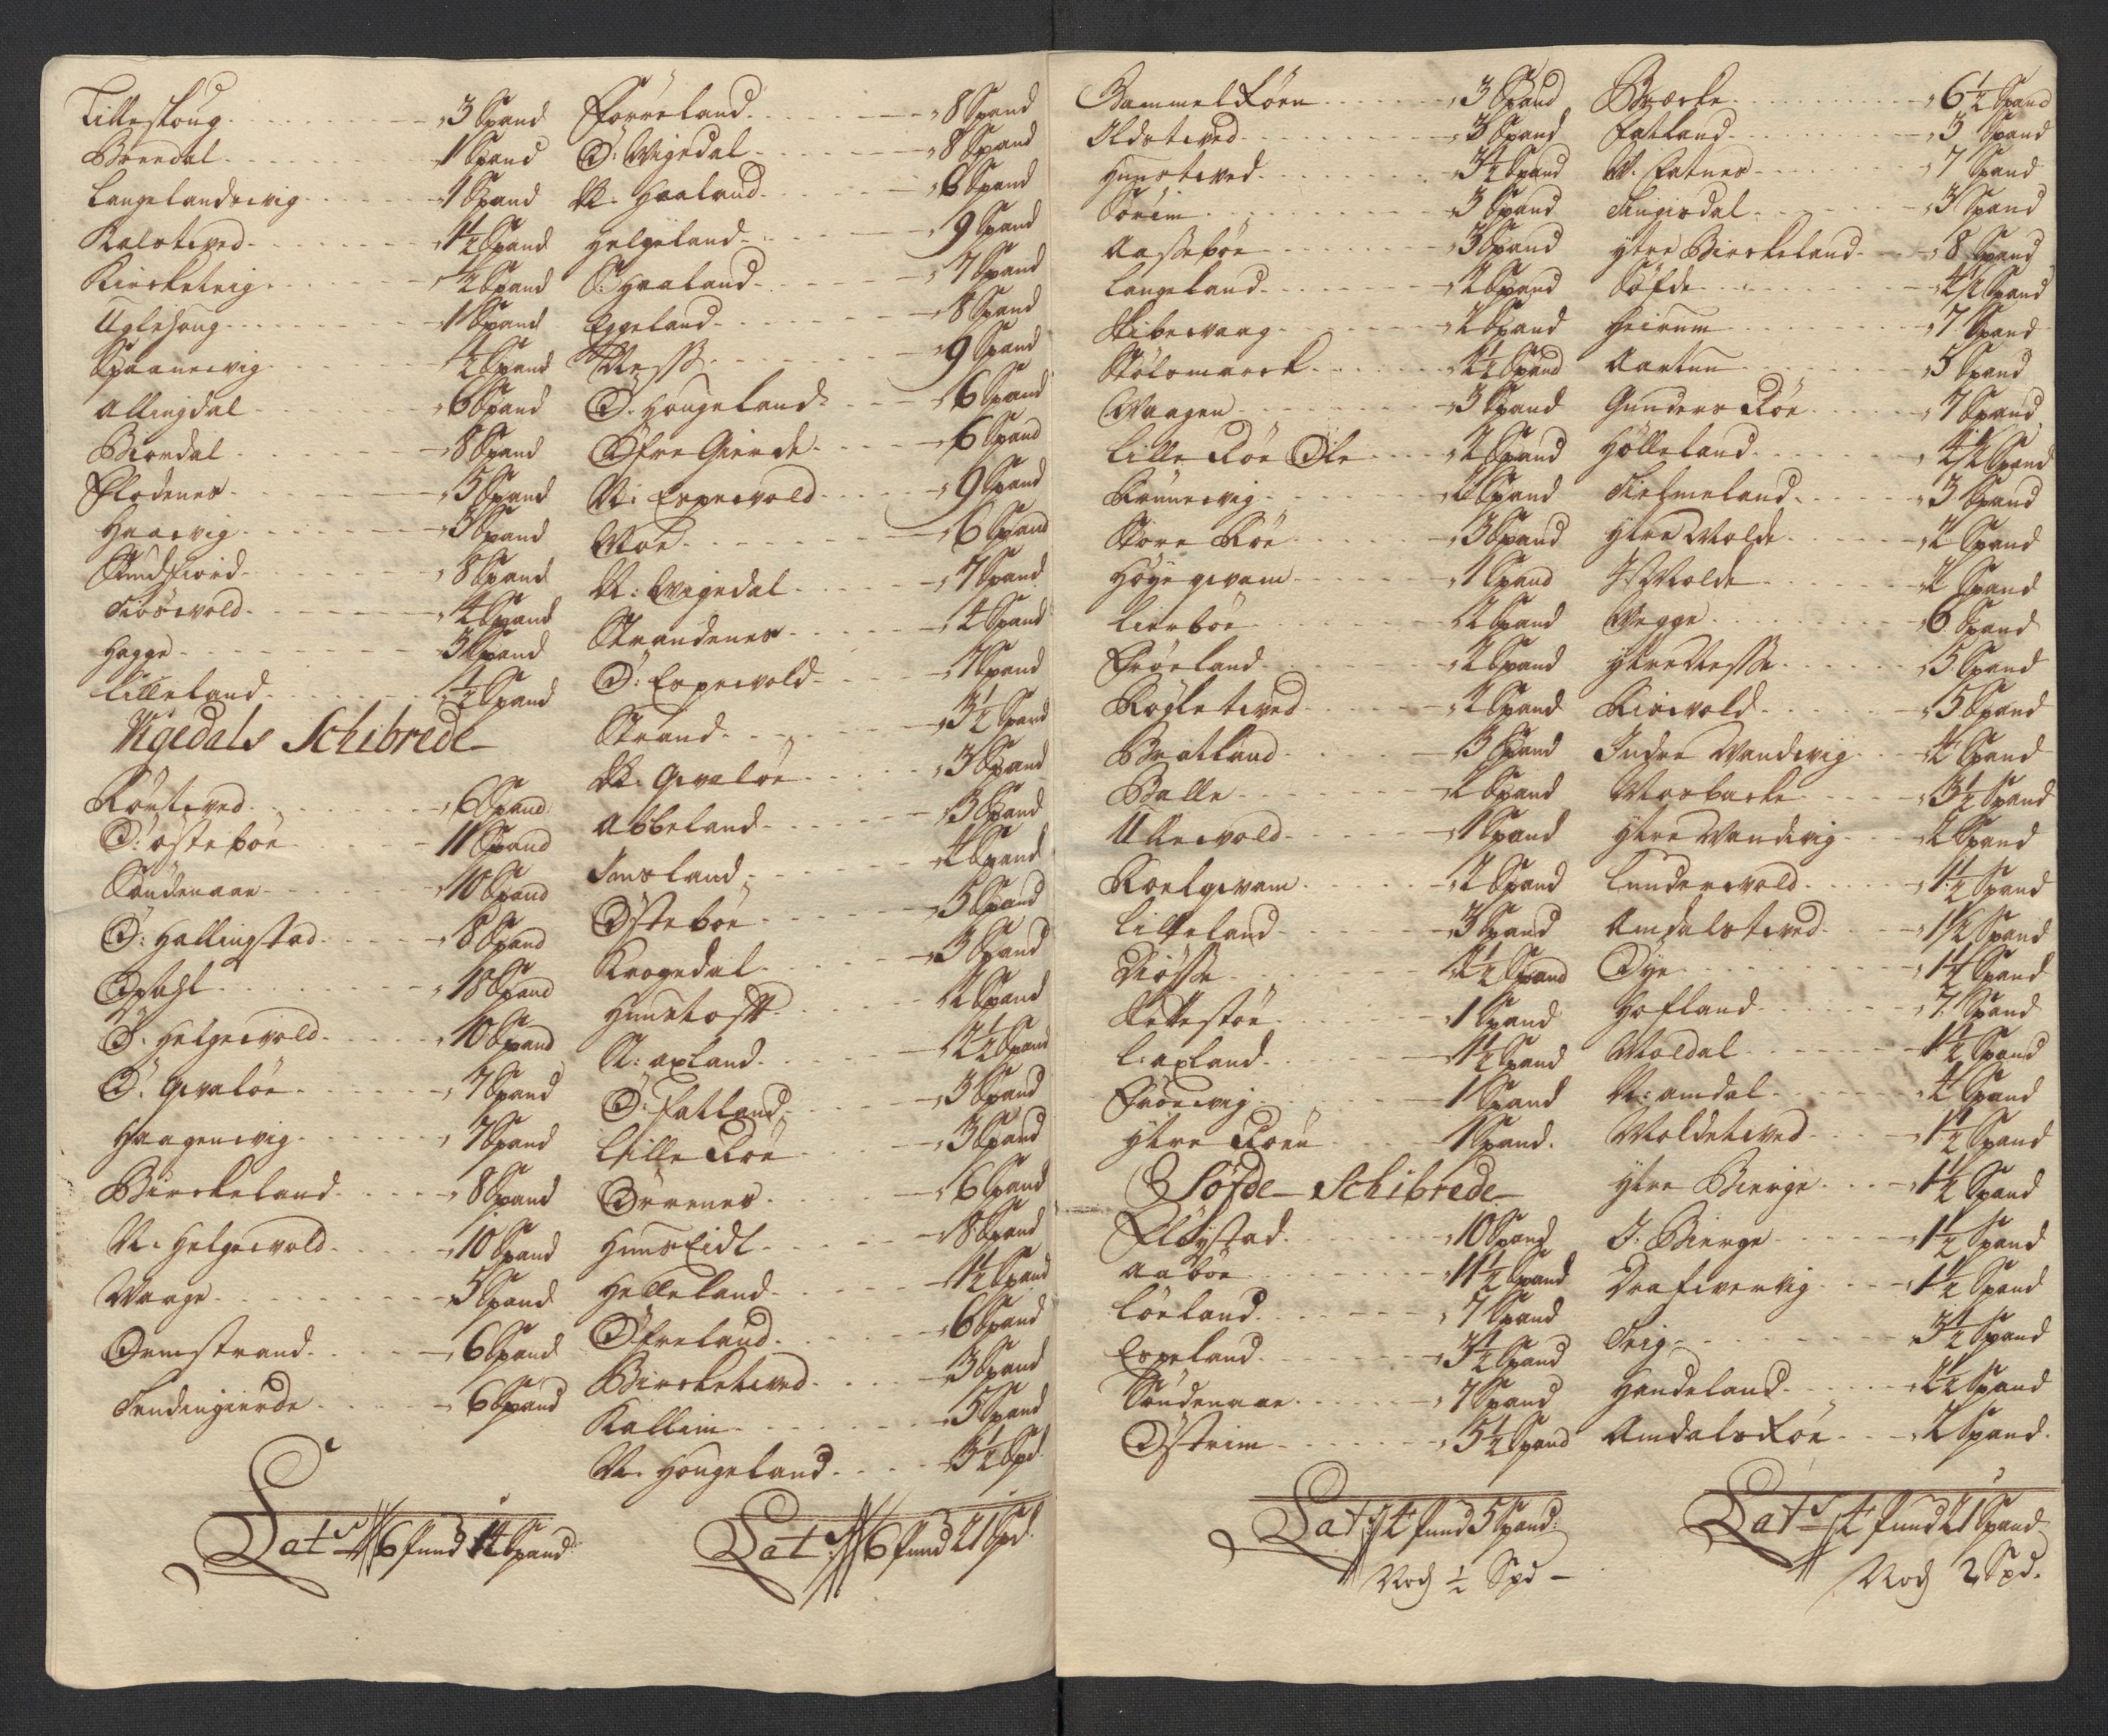 Tilleshoug 3 Spand
Breedal 1 Spand
Langelandsvig 1 Spand
Kalstved 1½ Spand
Kirketeig ½ Spand
Uglehoug 1 Spand
Spaanevig ½ Spand
Allingdal 6 Spand
Biordal 8 Spand
Flodenes 5 Spand
Haavig 3 Spand
Sandsfiord 8 Spand
Tiøsvold 4 Spand
Hagge 3 Spand
Lilleland 1½ Spand
Vigedals Schibrede
Røntved 6 Spand
Ø: østebøe 11 Spand
Søndenaae 10 Spand
Ø: Hallingstad 8 Spand
Opsahl 18 Spand
Ø: Helgevold 10 Spand
Ø: Qvaløe 7 Spand
Haagenvig 7 Spand
Birckeland 8 Spand
N: Helgevold 10 Spand
Vaage 5 Spand
Ormstrand 6 Spand
Sandengierde 6 Spand
Lat 6 pund 14 Spand
Førreland 8 Spand
Ø: Vigedal 8 Spand
N: Haaland 6 Spand
Helgeland 9 Spand
S: Haaland 7 Spand
Eggeland 8 Spand
Ness 9 Spand
Ø: Hougeland 6 Spand
Øfre Gierde 6 Spand
N: Espevold 9 Spand
Moe 6 Spand
N: Vigedal 7 Spand
Strandenes 4 Spand
Ø: Espevold 7 Spand
Strand 3½ Spand
N: Qvaløe 3 Spand
Abbeland 3 Spand
Imsland 4 Spand
Østebøe 5 Spand
Krogedal 3 Spand
Hunetoft 2 Spand
N: axland 2½ Spand
Ø: Fatland 3 Spand
Lille Røe 3 Spand
Ørrenes 6 Spand
Hunseidt 8 Spand
Helleland 1½ Spand
Øfreland 6 Spand
Bircketved 3 Spand
Kallim 5 Spand
N: Hougeland 3½ Spd
Lat 6 pund 21 Spd
Gammel Røen 3 Spand
Oldstved 3 Spand
Hunstved 3½ Spand
Sørim 3 Spand
Aassebøe 3 Spand
Langeland 2 Spand
Ribevaag 2 Spand
Stølsmarck 2½ Spand
Vaagen 3 Spand
Lille Røe Øfe 2 Spand
Brunnevig 2 Spand
Store Røe 3 Spand
Høyeqvam 1 Spand
Lierbøe 2 Spand
Frøeland 2 Spand
Røgletved 2 Spand
Bratland 3 Spand
Balle 2 Spand
Ullevold 1 Spand
Roelqvam 2 Spand
Lilleland 3 Spand
Diøsse 2½ Spand
Rettestøe 1 Spand
L: axland 1½ Spand
Frøevig 1 Spand
Ytre Roen 1 Spand.
Søfde Schibrede
Fløystad 10 Spand
Aabøe 11½ Spand
Løeland 7 Spand
Espeland 3½ Spand
Søndenaae 7 Spand
Østrim 5½ Spand
Lat: 4 pund 5 Spand:
Noch ½ Spd
Bercke 6½ Spand
Fatland 3 Spand
N: Eetnes 7 Spand
Tingisdal 3 Spand
Ytre Birckeland 8 Spand
Søfde 4½ Spand
Heirum 7 Spand
Aartun 5 Spand
Gunders Røe 7 Spand
Hølleland 4½ Spand
Tielmeland 3 Spand
Ytre Molde 2 Spand
J: Molde 2 Spand
Vegge 6 Spand
Ytre Nesse 5 Spand
Kirvold 5 Spand
Indre Vandvig 4 Spand
Mosbacke 3½ Spand
Ytre Vandvig 2 Spand
Lundervold 1½ Spand
Amdalstved 1½ Spand
Øye 1½ Spand
Hofland 7 Spand
Moldal 1½ Spand
N: amdal 4 Spand
Moldetved 1½ Spand
Ytre Bierge 1½ Spand
J: Bierge 1½ Spand
Drafvervig 1½ Spand
Teig 3½ Spand
Handeland 2½ Spand
Amdals Røe 2 Spand.
Lat 4 pund 21 Spand
Noch 2 Spd.